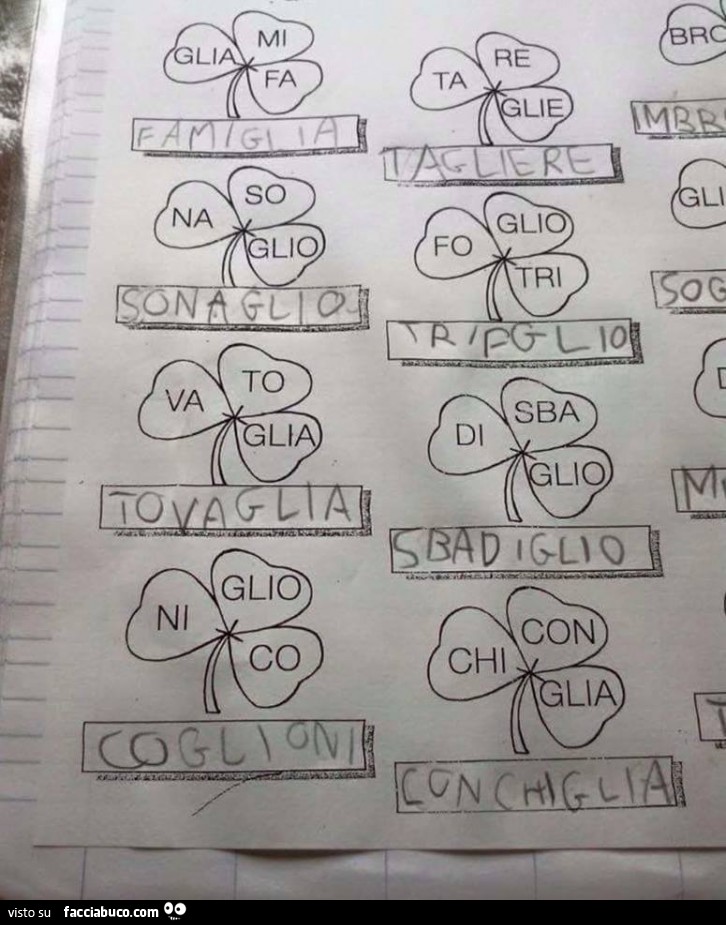 GLIA MI FA
FAMIGLIA
TA RE GLIE
TAGLIERE
BRO
IMBR
NA SO GLIO
SONAGLIO
FO GLIO TRI
TRIFGLIO
GLI
SOG
VA TO GLIA
TOVAGLIA
DI SBA GLIO
SBADIGLIO
NI GLIO CO
COGLIONI
CHI CON GLIA
CONCHIGLIA
visto su facciabuco.com